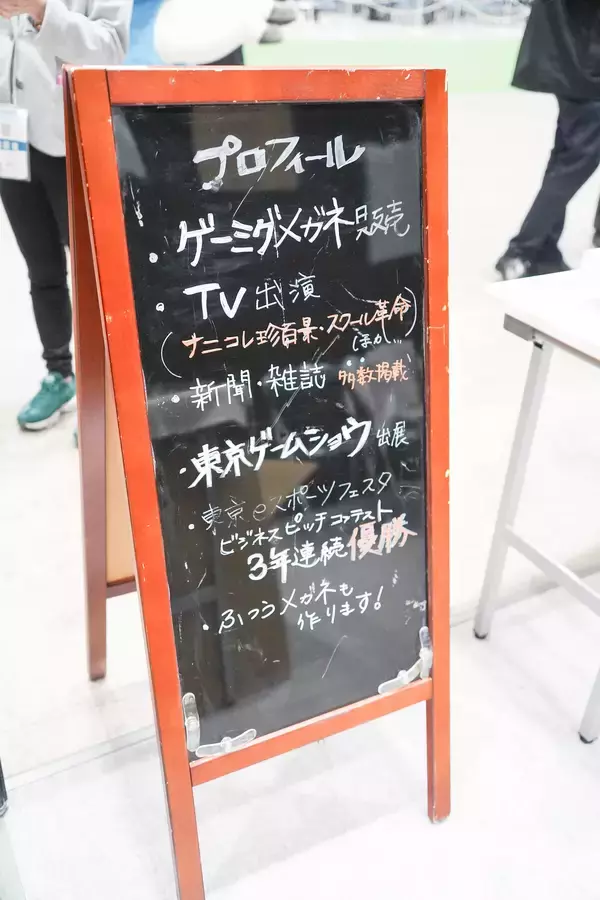 プロフィール
・ゲーミグメガネ販売
・TV出演
(ナニコレ珍百景・スクール革命)
ほか…
・新聞・雑誌 多数掲載
・東京ゲームショウ出展
・東京eスポーツフェスタ
ビジネスピッチコンテスト
3年連続優勝
・ふつうメガネも
作ります!